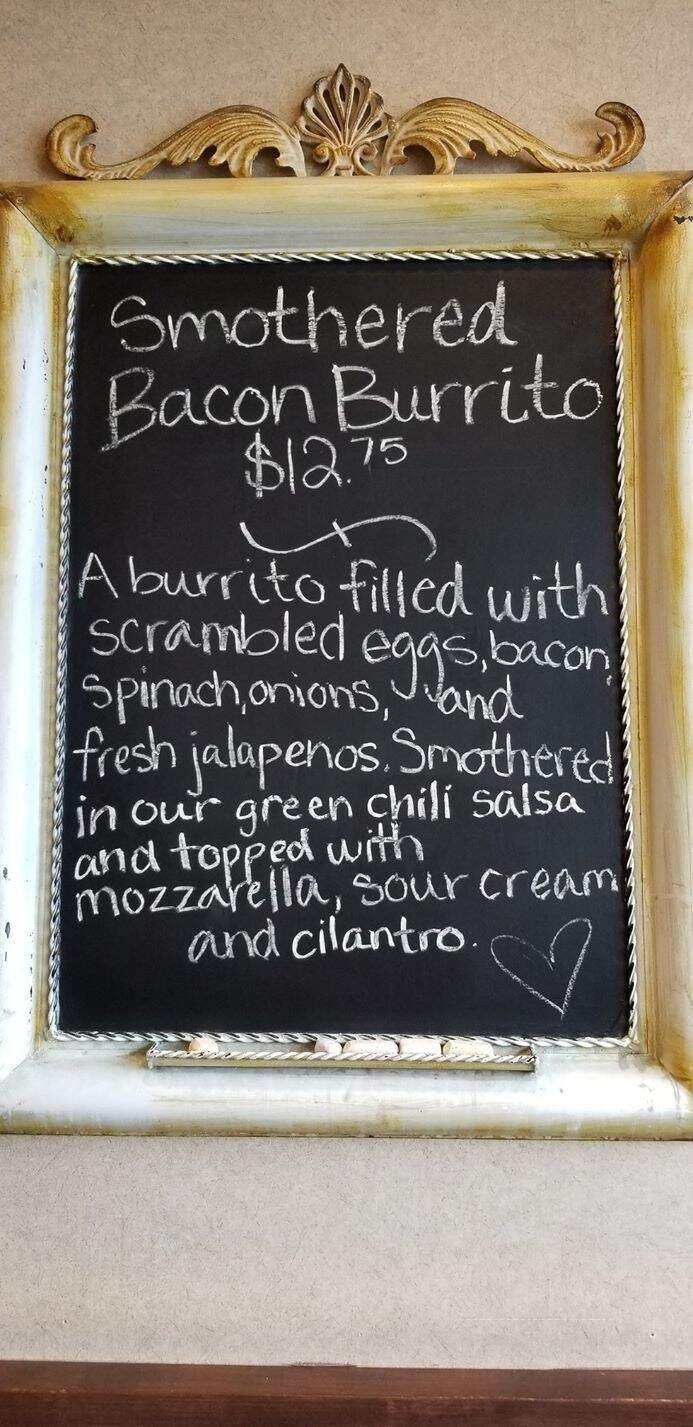 Smothered
Bacon Burrito
$12.75
A burrito filled with
scrambled eggs, bacon,
spinach, onions, and
fresh jalapenos. Smothered
in our green chili salsa
and topped with
mozzarella, sour cream
and cilantro.